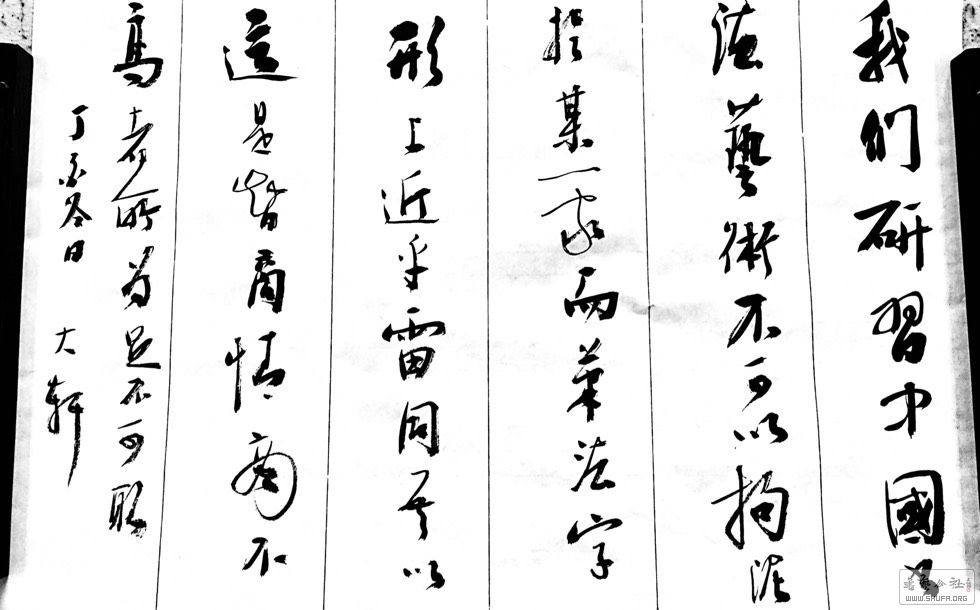 我们研習中國书
法藝術不可以拘泥
於某一家而筆法字
形上近乎雷同吾以
這是智商情商不
高者所为是不可取
丁亥冬日 大軒
WWW.SHUFA.ORG